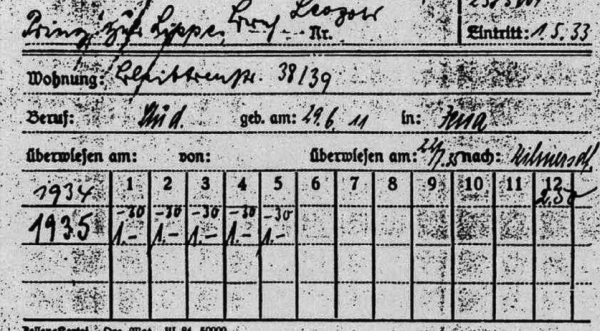 Prinz zur Lippe,
Nr. Eintritt: 1.5.33
Wohnung: 38/39
Beruf: Stud. geb. am: 29.6.11 in: Jena
überwiesen am: von: überwiesen am: nach:
1934 1 2 3 4 5 6 7 8 9 10 11 12
2.50
1935 -30 -30 -30 -30 -30
1.- 1.- 1.- 1.- 1.-